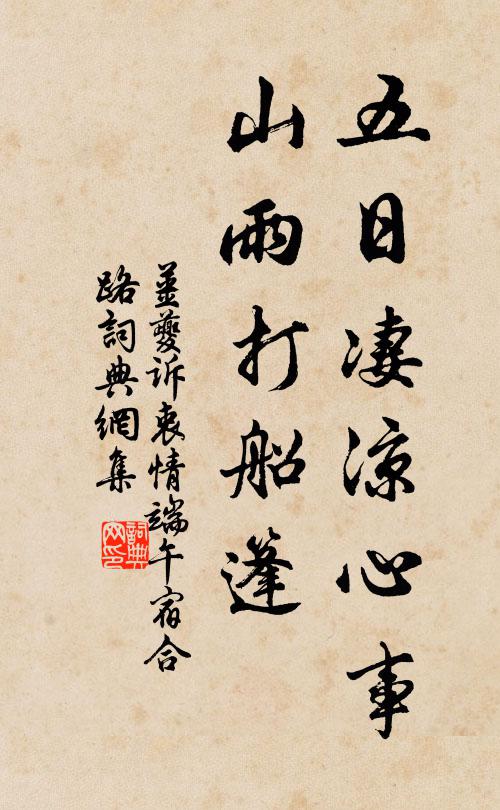 五日淒涼心事
山雨打船蓬
姜夔訴衷情端午宿合
路詞典網集
詞典
网印